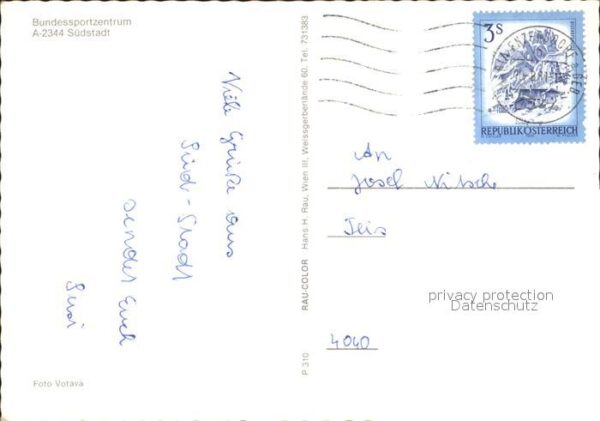 Bundessportzentrum
A-2344 Südstadt
Viele Grüße aus
Süd-Stadt
sendet Euch
Susi
Foto Votava
P 310 RAU-COLOR Hans H. Rau, Wien III, Weissgerberlände 60, Tel. 731383
3S
REPUBLIK ÖSTERREICH
An
Josef Nitsche
privacy protection
Datenschutz
4040